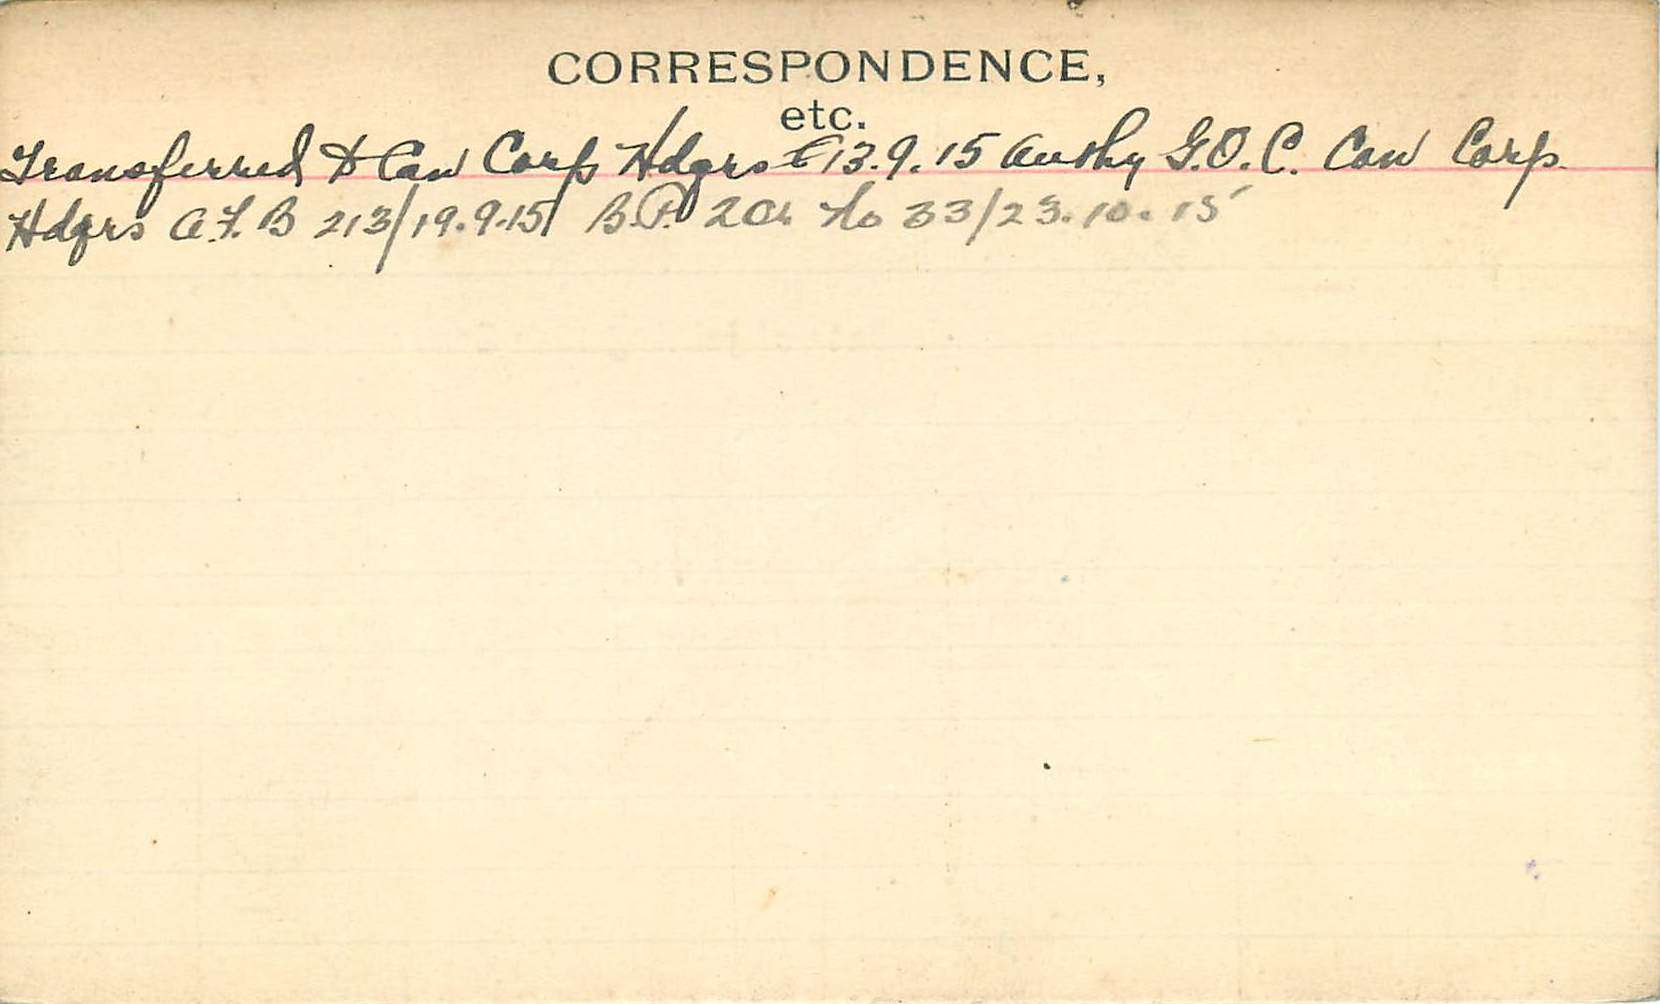 CORRESPONDENCE,
etc.
Transferred to Can Corp Hdqrs 13.9.15 Authy G.O.C. Can Corp.
Hdqrs A.F. B 213/19.9.15/ B.P. No 33/23.10.15